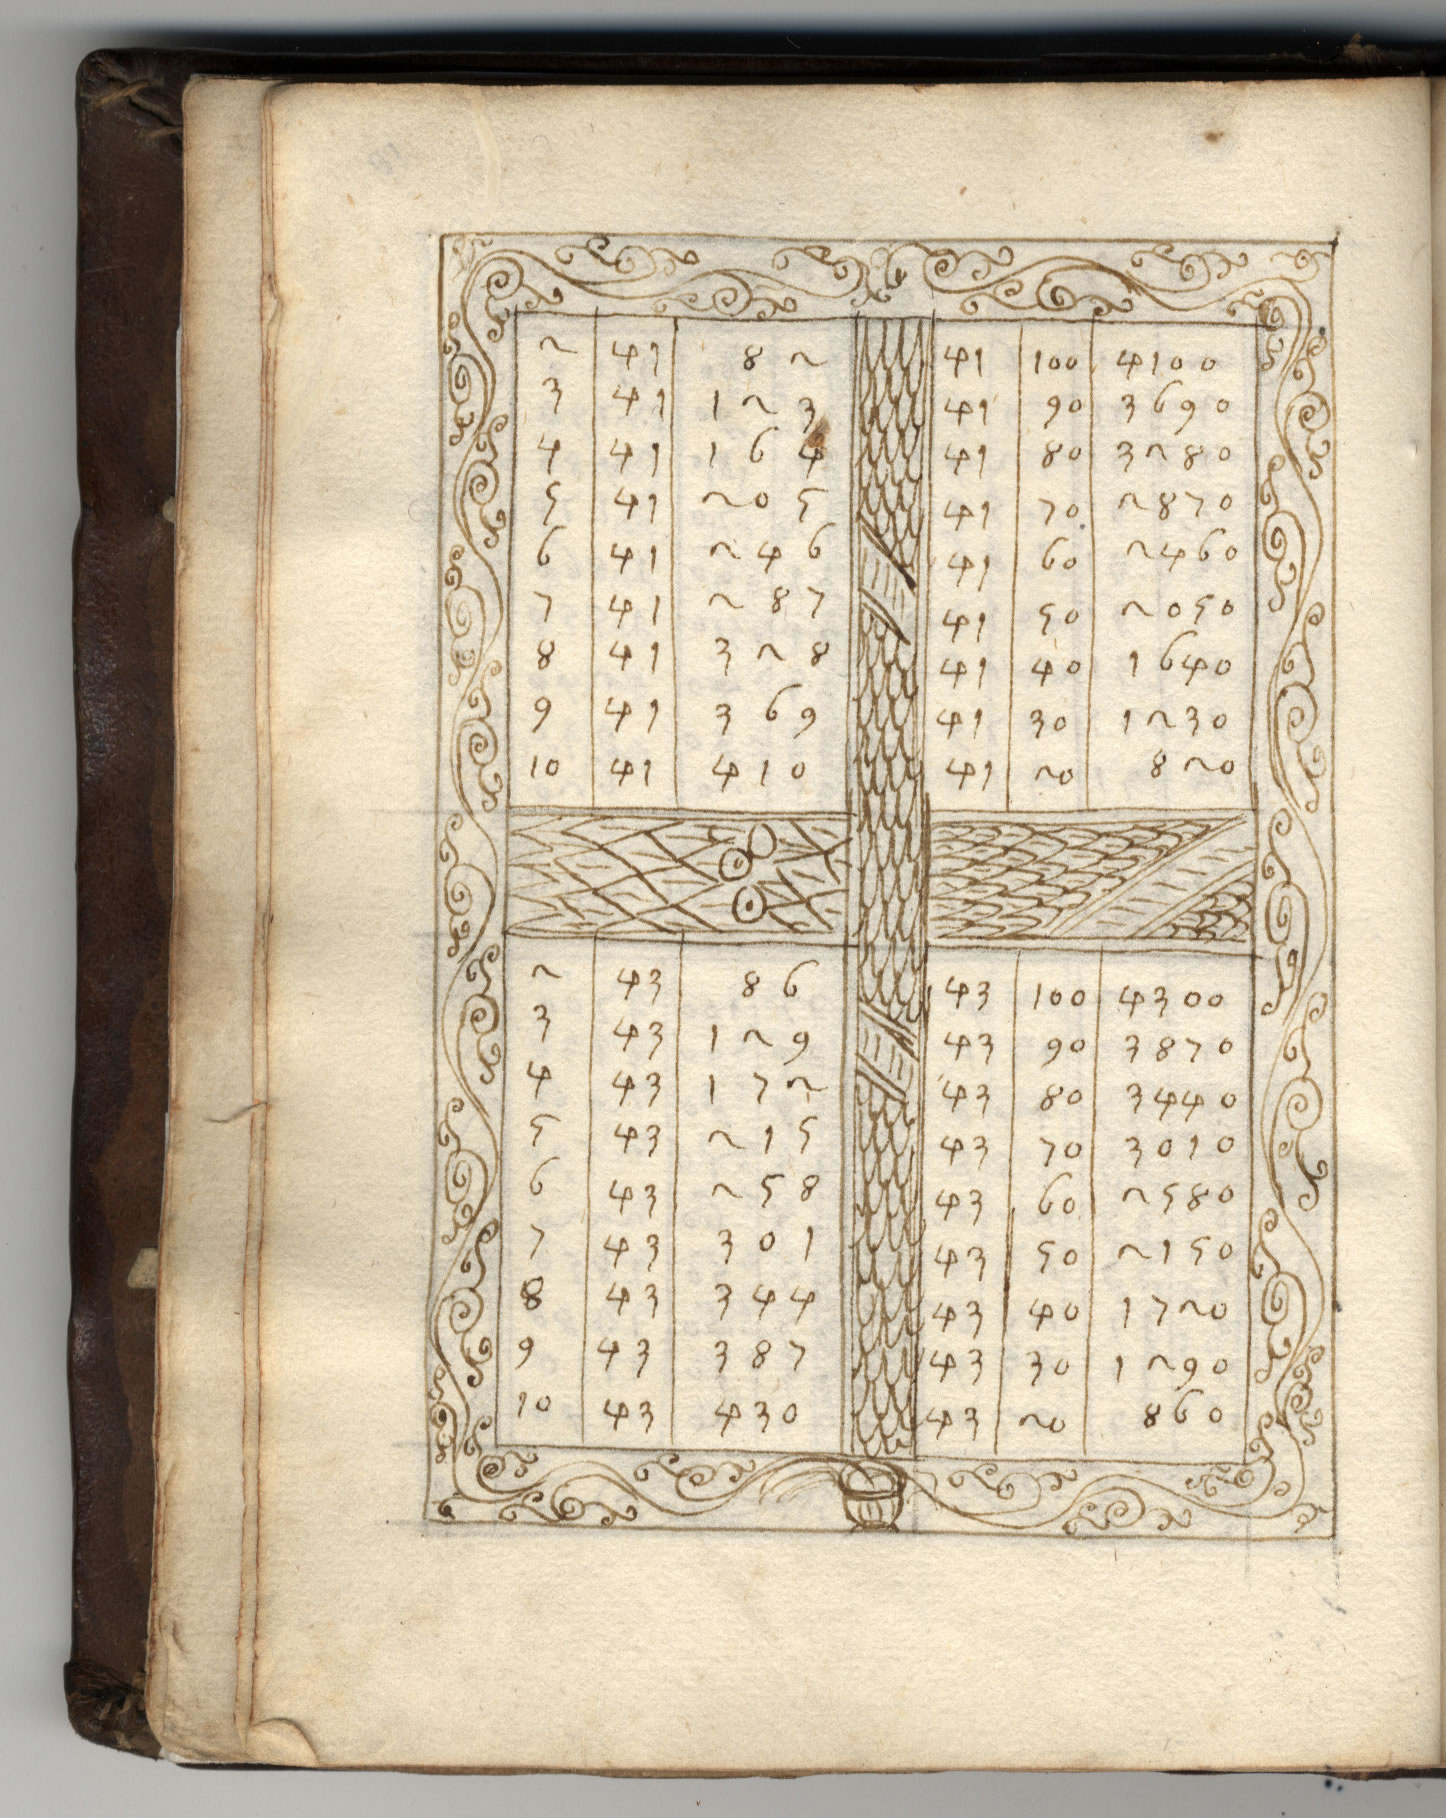 2 41 82
3 41 123
4 41 164
5 41 205
6 41 246
7 41 287
8 41 328
9 41 369
10 41 410
41 100 4100
41 90 3690
41 80 3280
41 70 2870
41 60 2460
41 50 2050
41 40 1640
41 30 1230
41 20 820
2 43 86
3 43 129
4 43 172
5 43 215
6 43 258
7 43 301
8 43 344
9 43 387
10 43 430
43 100 4300
43 90 3870
43 80 3440
43 70 3010
43 60 2580
43 50 2150
43 40 1720
43 30 1290
43 20 860